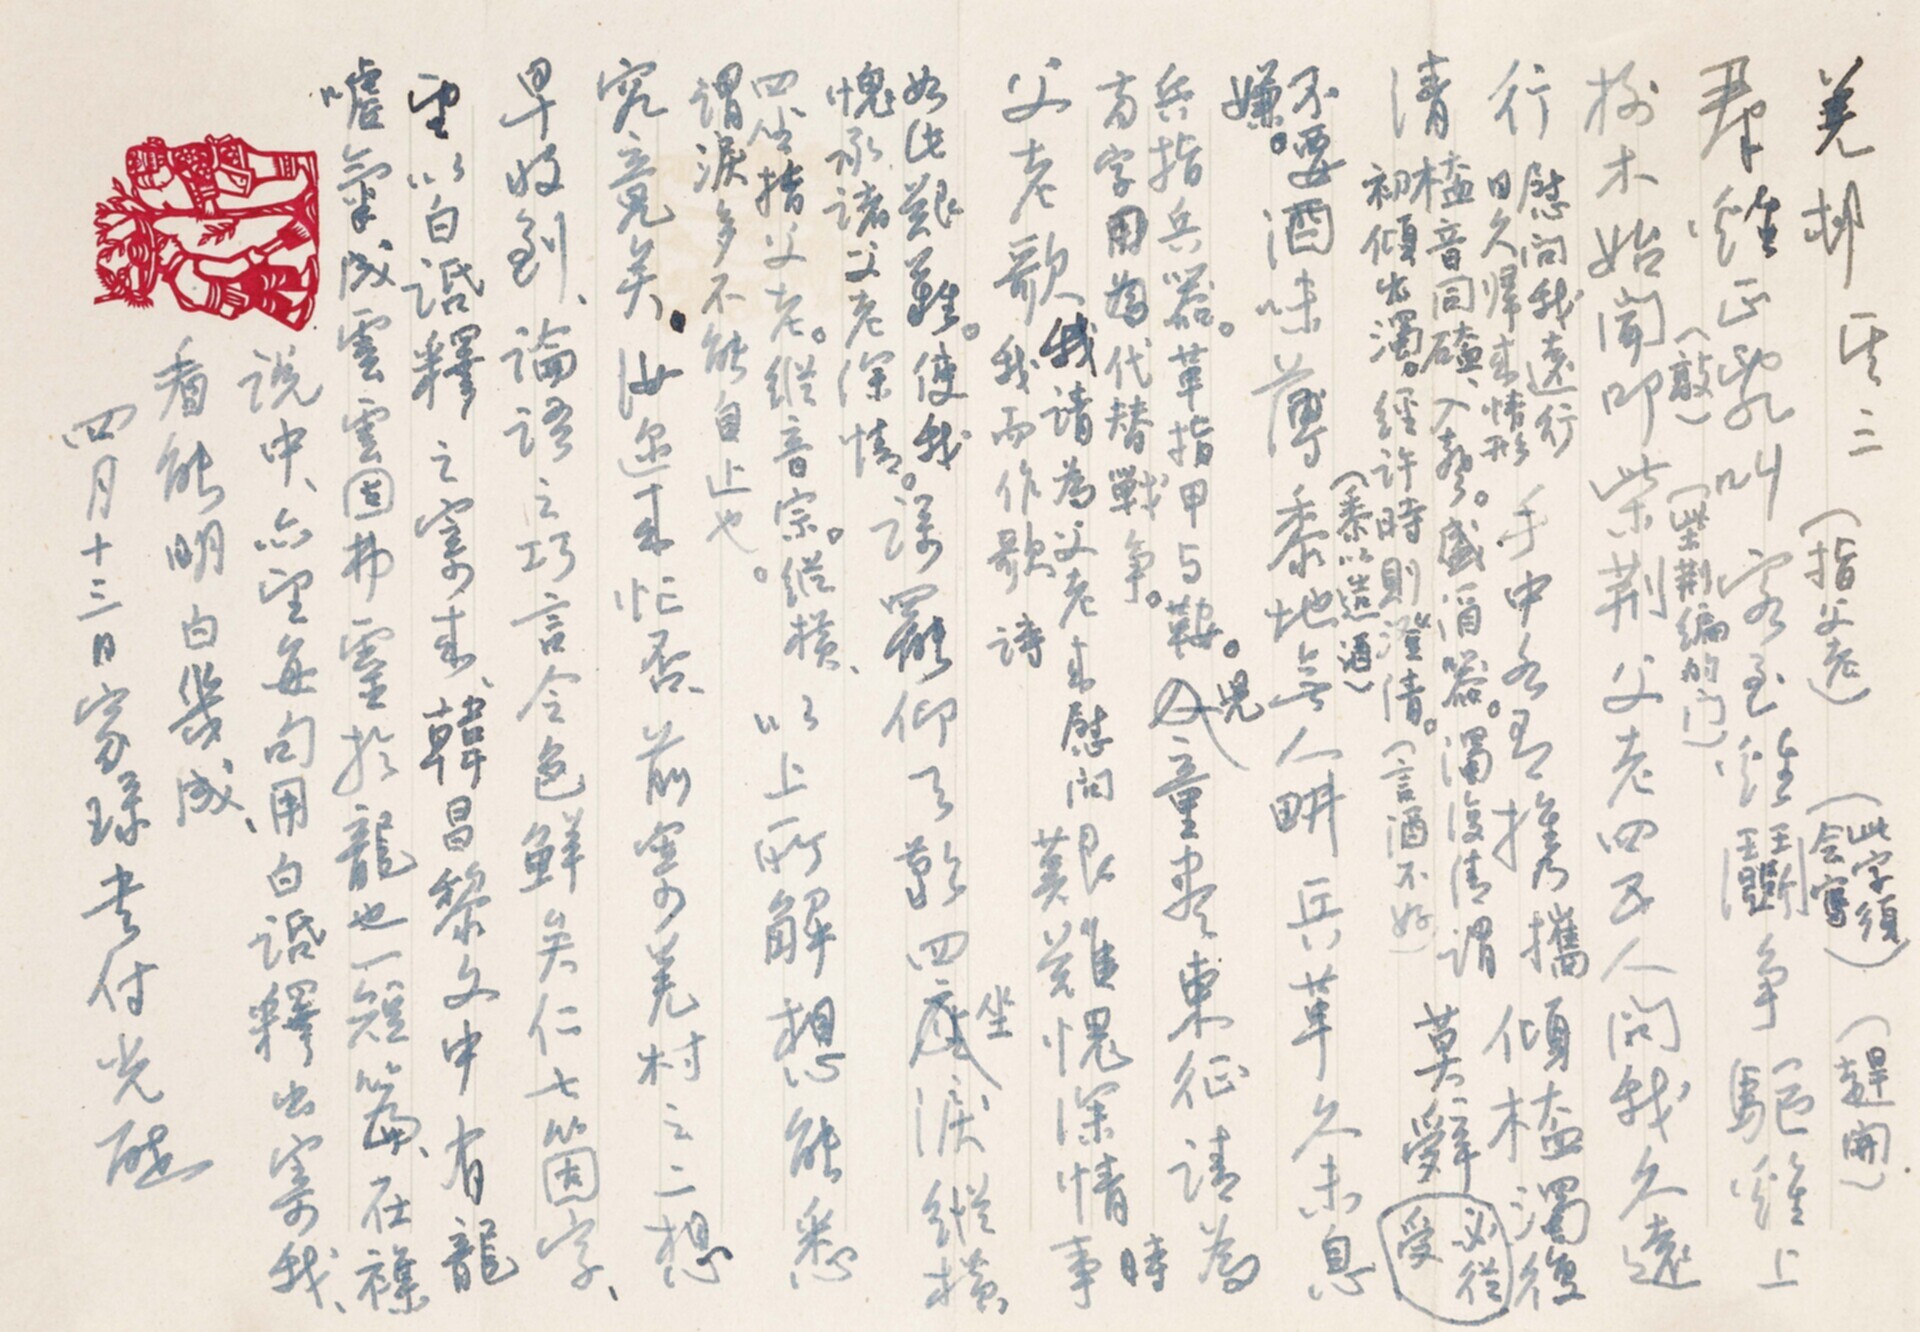 羌邨 其三
(指父老)
(此字須會寫)
(趕開)
群雞正亂叫 客至雞鬥爭 驅雞上
(敲)
(柴荆編的门)
樹木始聞叩柴荆 父老四五人問我久遠
行 慰问我遠行日久歸来情形 手中各有携 攜 傾榼濁復
清 榼音同磕、入聲。盛酒器。濁復清謂初傾出濁。經許時則澄清。 莫辤受 必從受
(言酒不好)
不要嫌。酒味薄 黍地無人畊 兵革久未息
(黍以造酒)
兵指兵器。革指甲与鞍。兩字用為代替戰争。 兒童盡東征 請為
父老歌 我請為父老来慰问我而作歌詩 艱難愧深情 事
時如此艱難。使我愧承諸父老深情。 歌罷仰天歎 四坐淚縱橫
四坐指父老。縱音宗。縱橫、謂淚多不能自止也。 以上所解想能悉
究竟矣。汝近来忙否、前寄羌村之二想
早收到、論語之巧言令色鮮矣仁七箇字、
望以白話釋之寄来、韓昌黎文中有龍
噓氣成雲雲固弗靈於龍也一短篇、在襍
說中、亦望每句用白話釋出寄我、
看能明白幾成、
四月十三日家琭書付光砡